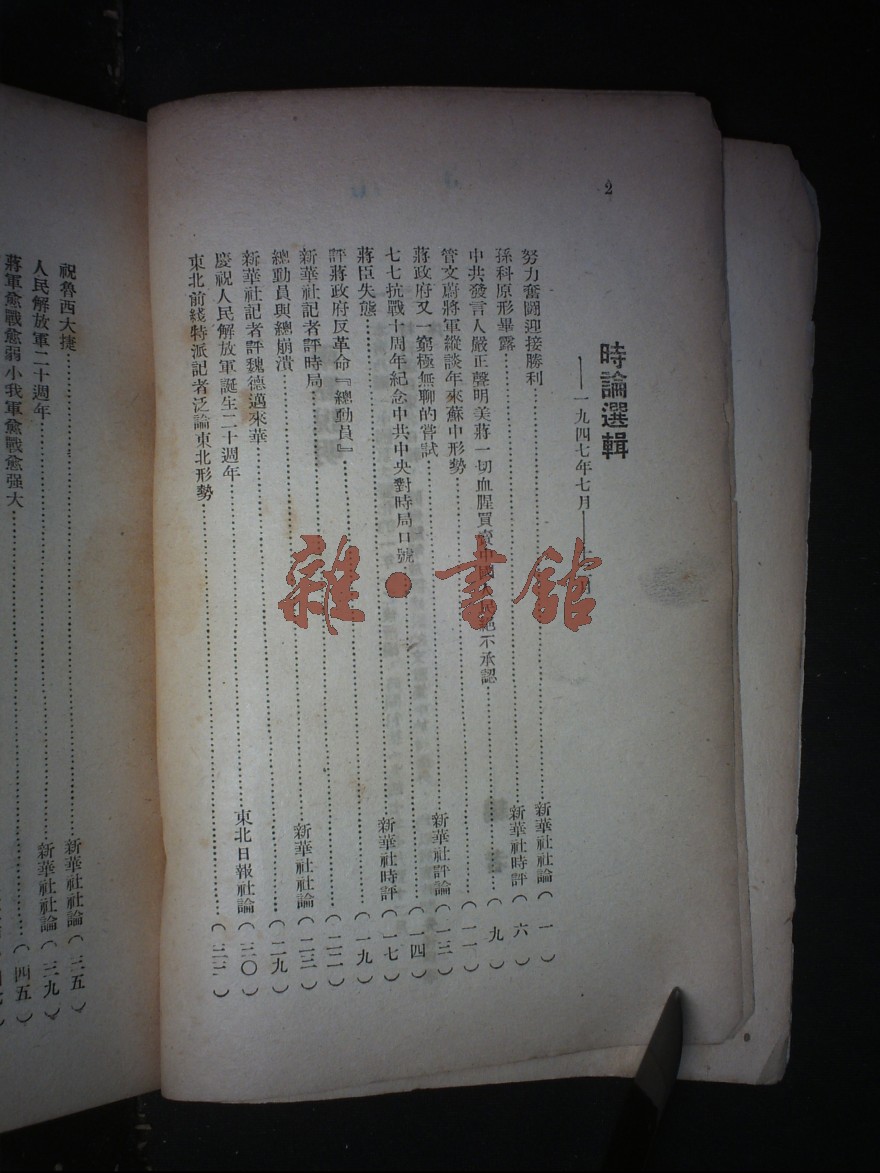 2
時論選輯
——一九四七年七月——
努力奮鬪迎接勝利……新華社社論（一）
孫科原形畢露……新華社時評（六）
中共發言人嚴正聲明美蔣一切血腥買賣中國人民絕不承認……（九）
管文蔚將軍縱談年來蘇中形勢……（一一）
蔣政府又一窮極無聊的嘗試……新華社評論（一三）
七七抗戰十周年紀念中共中央對時局口號……（一四）
蔣臣失態……新華社時評（一七）
評蔣政府反革命『總動員』……（一九）
新華社記者評時局……（二二）
總動員與總崩潰……新華社社論（二三）
新華社記者評魏德邁來華……（二九）
慶祝人民解放軍誕生二十週年……東北日報社論（三〇）
東北前綫特派記者泛論東北形勢……（三三）
祝魯西大捷……新華社社論（三五）
人民解放軍二十週年……新華社社論（三九）
蔣軍愈戰愈弱小我軍愈戰愈强大……（四五）
雜·書館